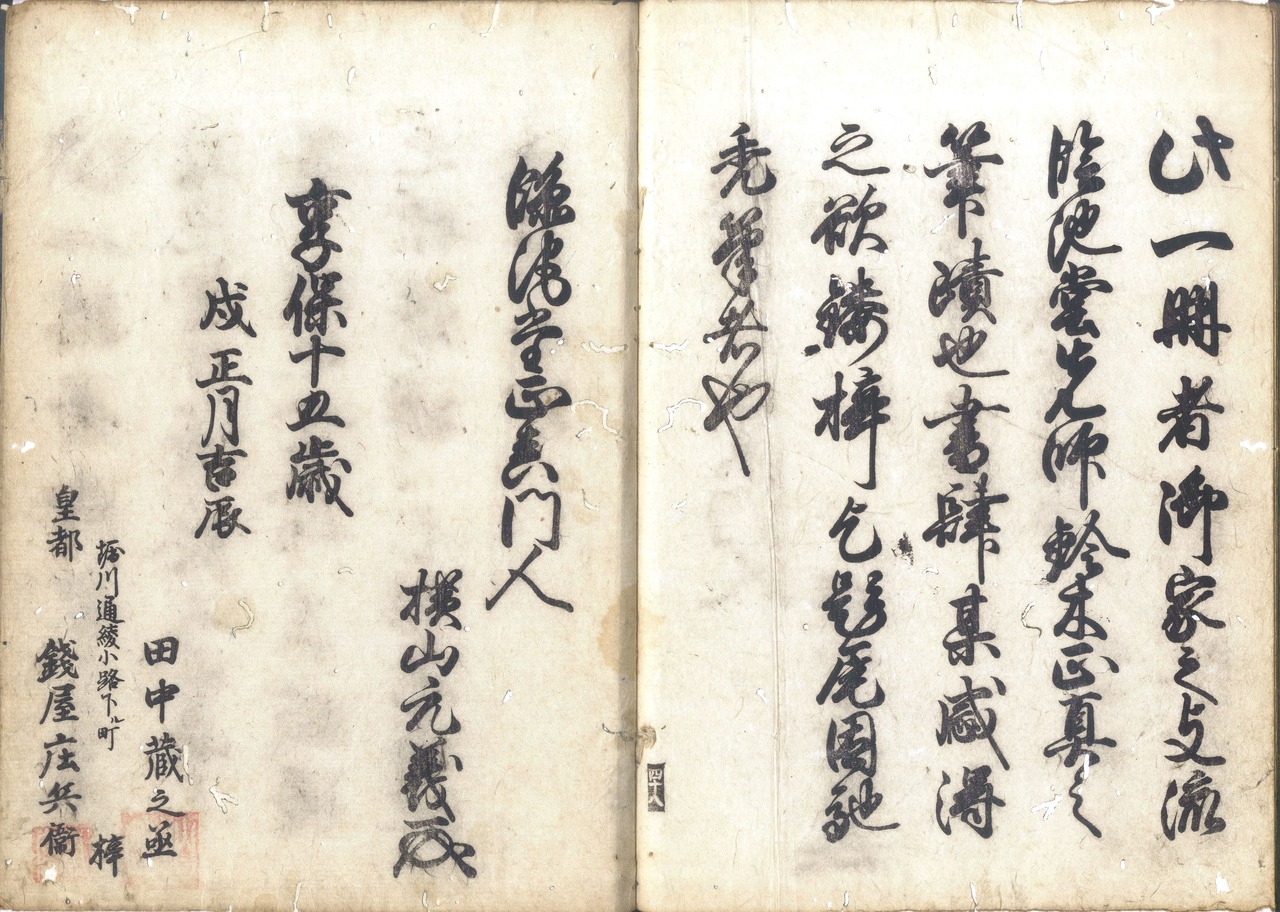 此一冊者御家之支流
臨池堂先師鈴木正真之
筆蹟也書肆某感得
之欲鏤梓乞跋尾因馳
禿筆者也
臨池堂正真門人
横山元義
享保十五歳
戌正月吉辰
田中蔵之丞
堀川通綾小路下ル町
梓
皇都 錢屋庄兵衛
四十八